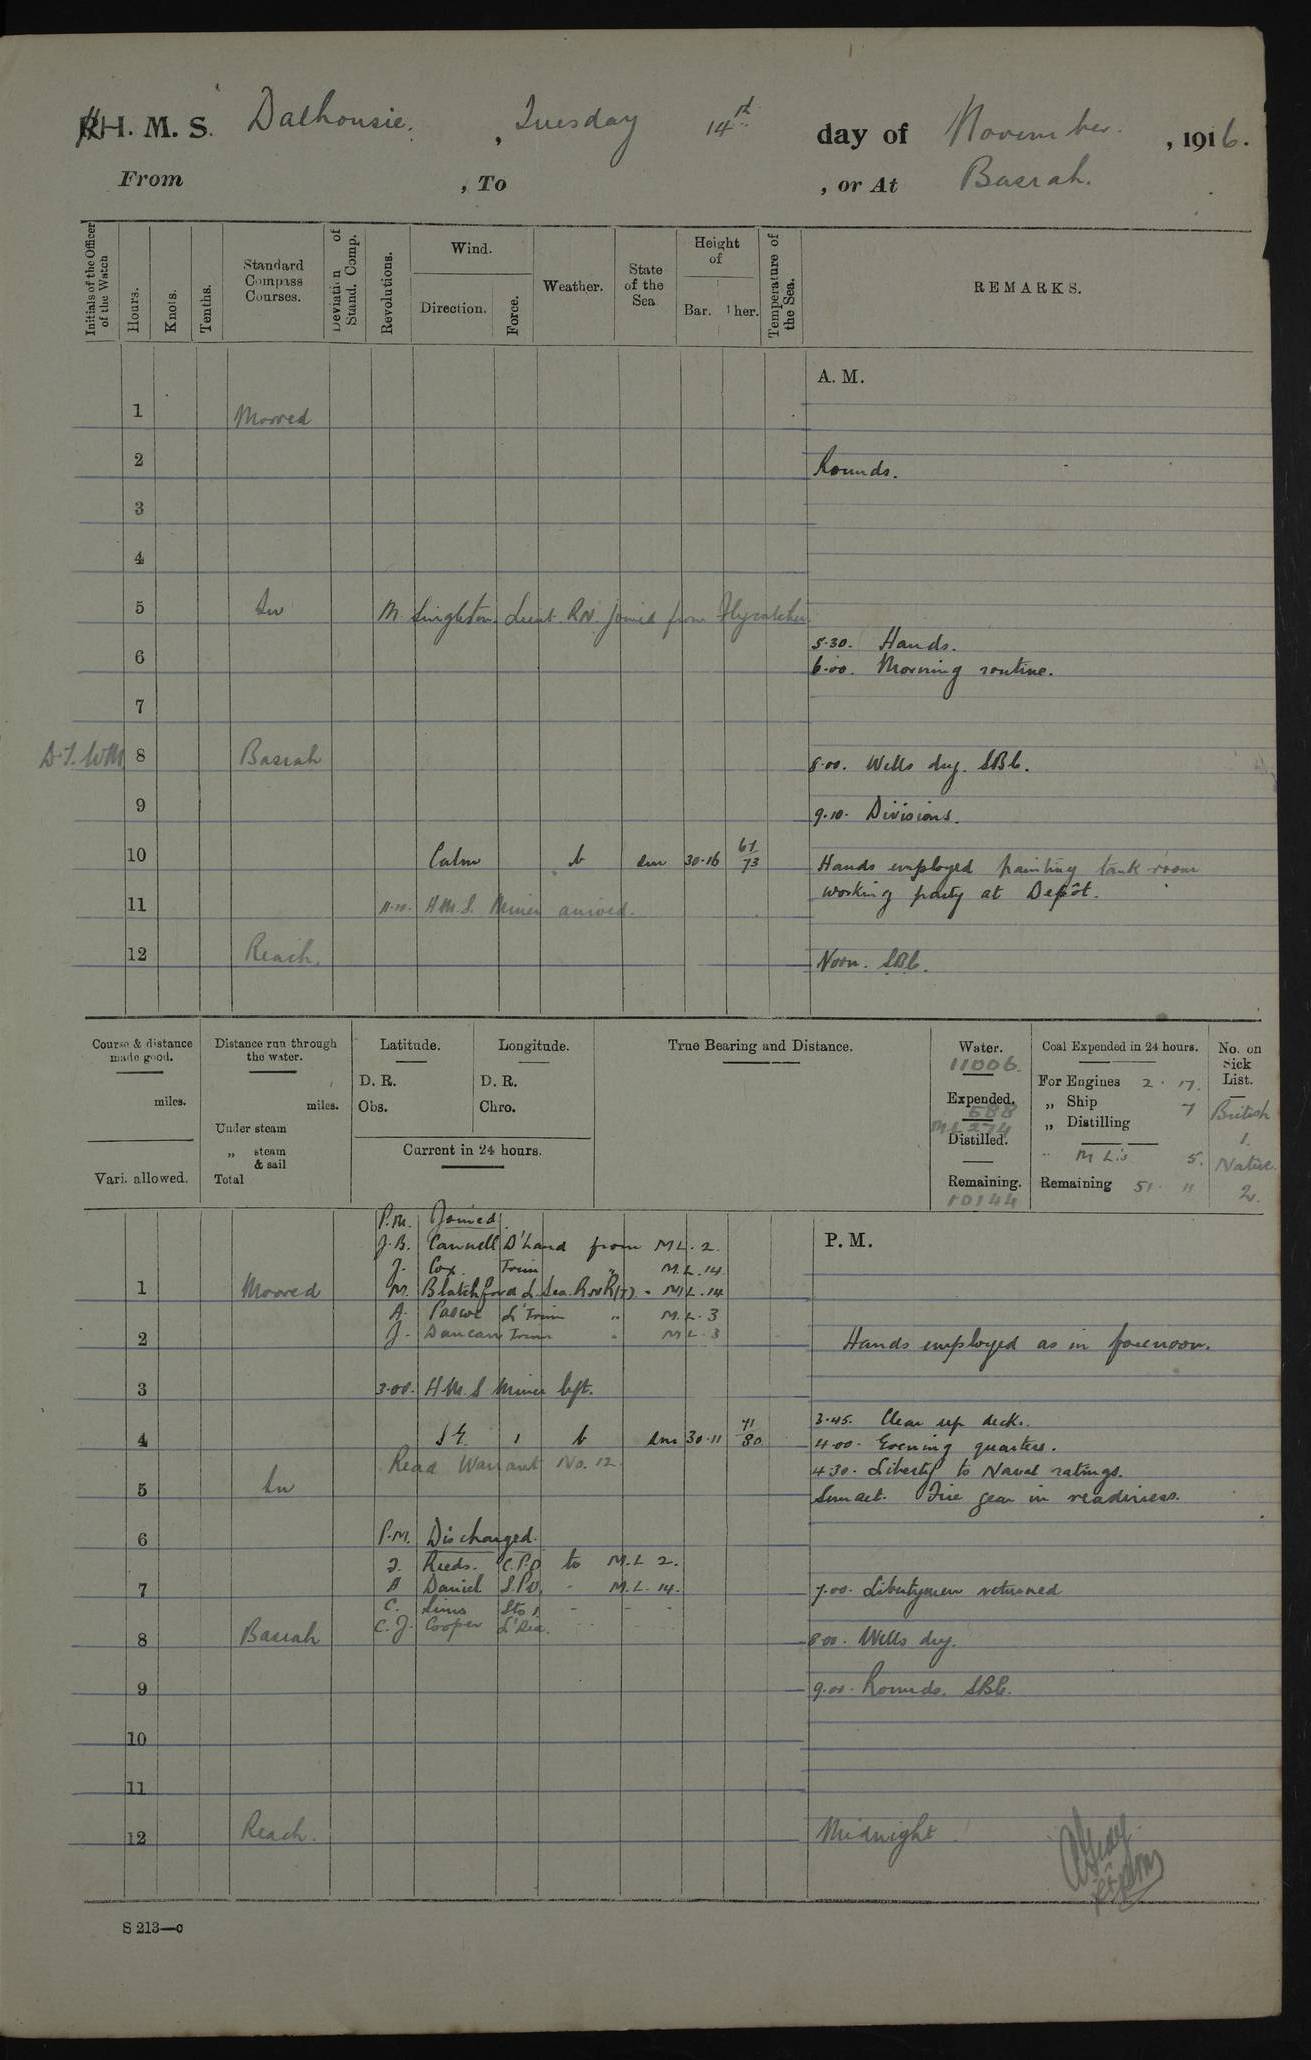 H. M. S. Dalhousie. , Tuesday 14th day of November. , 1916.
From , To , or At Basrah.
Initials of the Officer of the Watch
Hours.
Knots.
Tenths.
Standard Compass Courses.
Deviation of Stand. Comp.
Revolutions.
Wind.
Direction.
Force.
Weather.
State of the Sea
Height of
Bar.
Ther.
Temperature of the Sea.
REMARKS.
A. M.
1 Moored
2 Rounds.
3
4
5 In M. Singleton Lieut. R.N. joined from Flycatcher
5.30. Hands.
6 6.00. Morning routine.
7
8 Basrah 8.00. Wells dry. SBC.
9 9.10. Divisions.
10 Calm b sm 30.16 61/73 Hands employed painting tank room
working party at Depôt.
11 11.10. H.M.S. Miner arrived.
12 Reach. Noon. SBC.
Course & distance made good.
miles.
Vari. allowed.
Distance run through the water.
miles.
Under steam
„ steam & sail
Total
Latitude.
D. R.
Obs.
Longitude.
D. R.
Chro.
Current in 24 hours.
True Bearing and Distance.
Water.
11006.
Expended.
588
ML 274
Distilled.
Remaining.
10144
Coal Expended in 24 hours.
For Engines 2. 17.
„ Ship 7
„ Distilling
„ M Ls 5.
Remaining 51. 11
No. on Sick List.
British
1.
Native
2.
P.M. Joined.
P. M.
J.B. Cannell D'hand from ML. 2.
J. Cox. Trim " M.L. 14
1 Moored M. Blatchford L. Sea. RNR(T). " ML. 14
A. Pascoe L'Trim " M.L. 3
2 J. Duncan Trim " ML. 3 Hands employed as in forenoon.
3 3.00. H.M.S Miner left.
3.45. Clear up decks.
4 S.E. 1 b sm 30.11 71/80 4.00. Evening quarters.
Read Warrant No. 12.
4.30. Liberty to Naval ratings.
5 In Sunset. Fire gear in readiness.
6 P.M. Discharged.
J. Reeds. C.P.O to M.L 2.
7 A Daniel S.P.O. " M.L. 14. 7.00. Libertymen returned
C. Sims Sto 1. " " "
C.J. Cooper L'Sea.
8 Basrah 8.00. Wells dry.
9 9.00. Rounds. SBC.
10
11
12 Reach. Midnight.
S 213—c